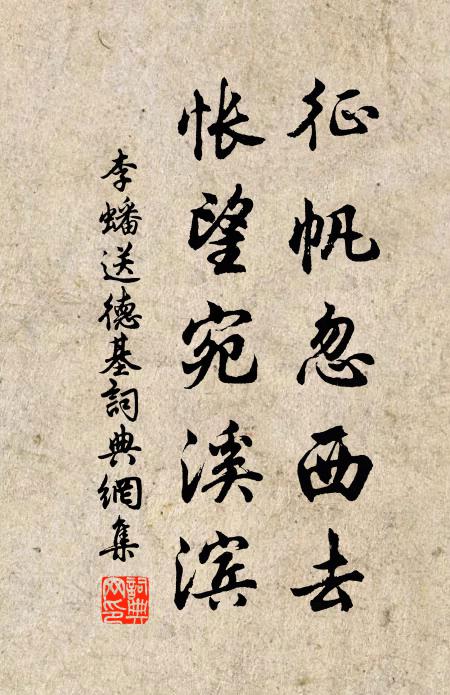 征帆忽西去
怅望宛溪滨
李蟠送德基詞典網集
詞典